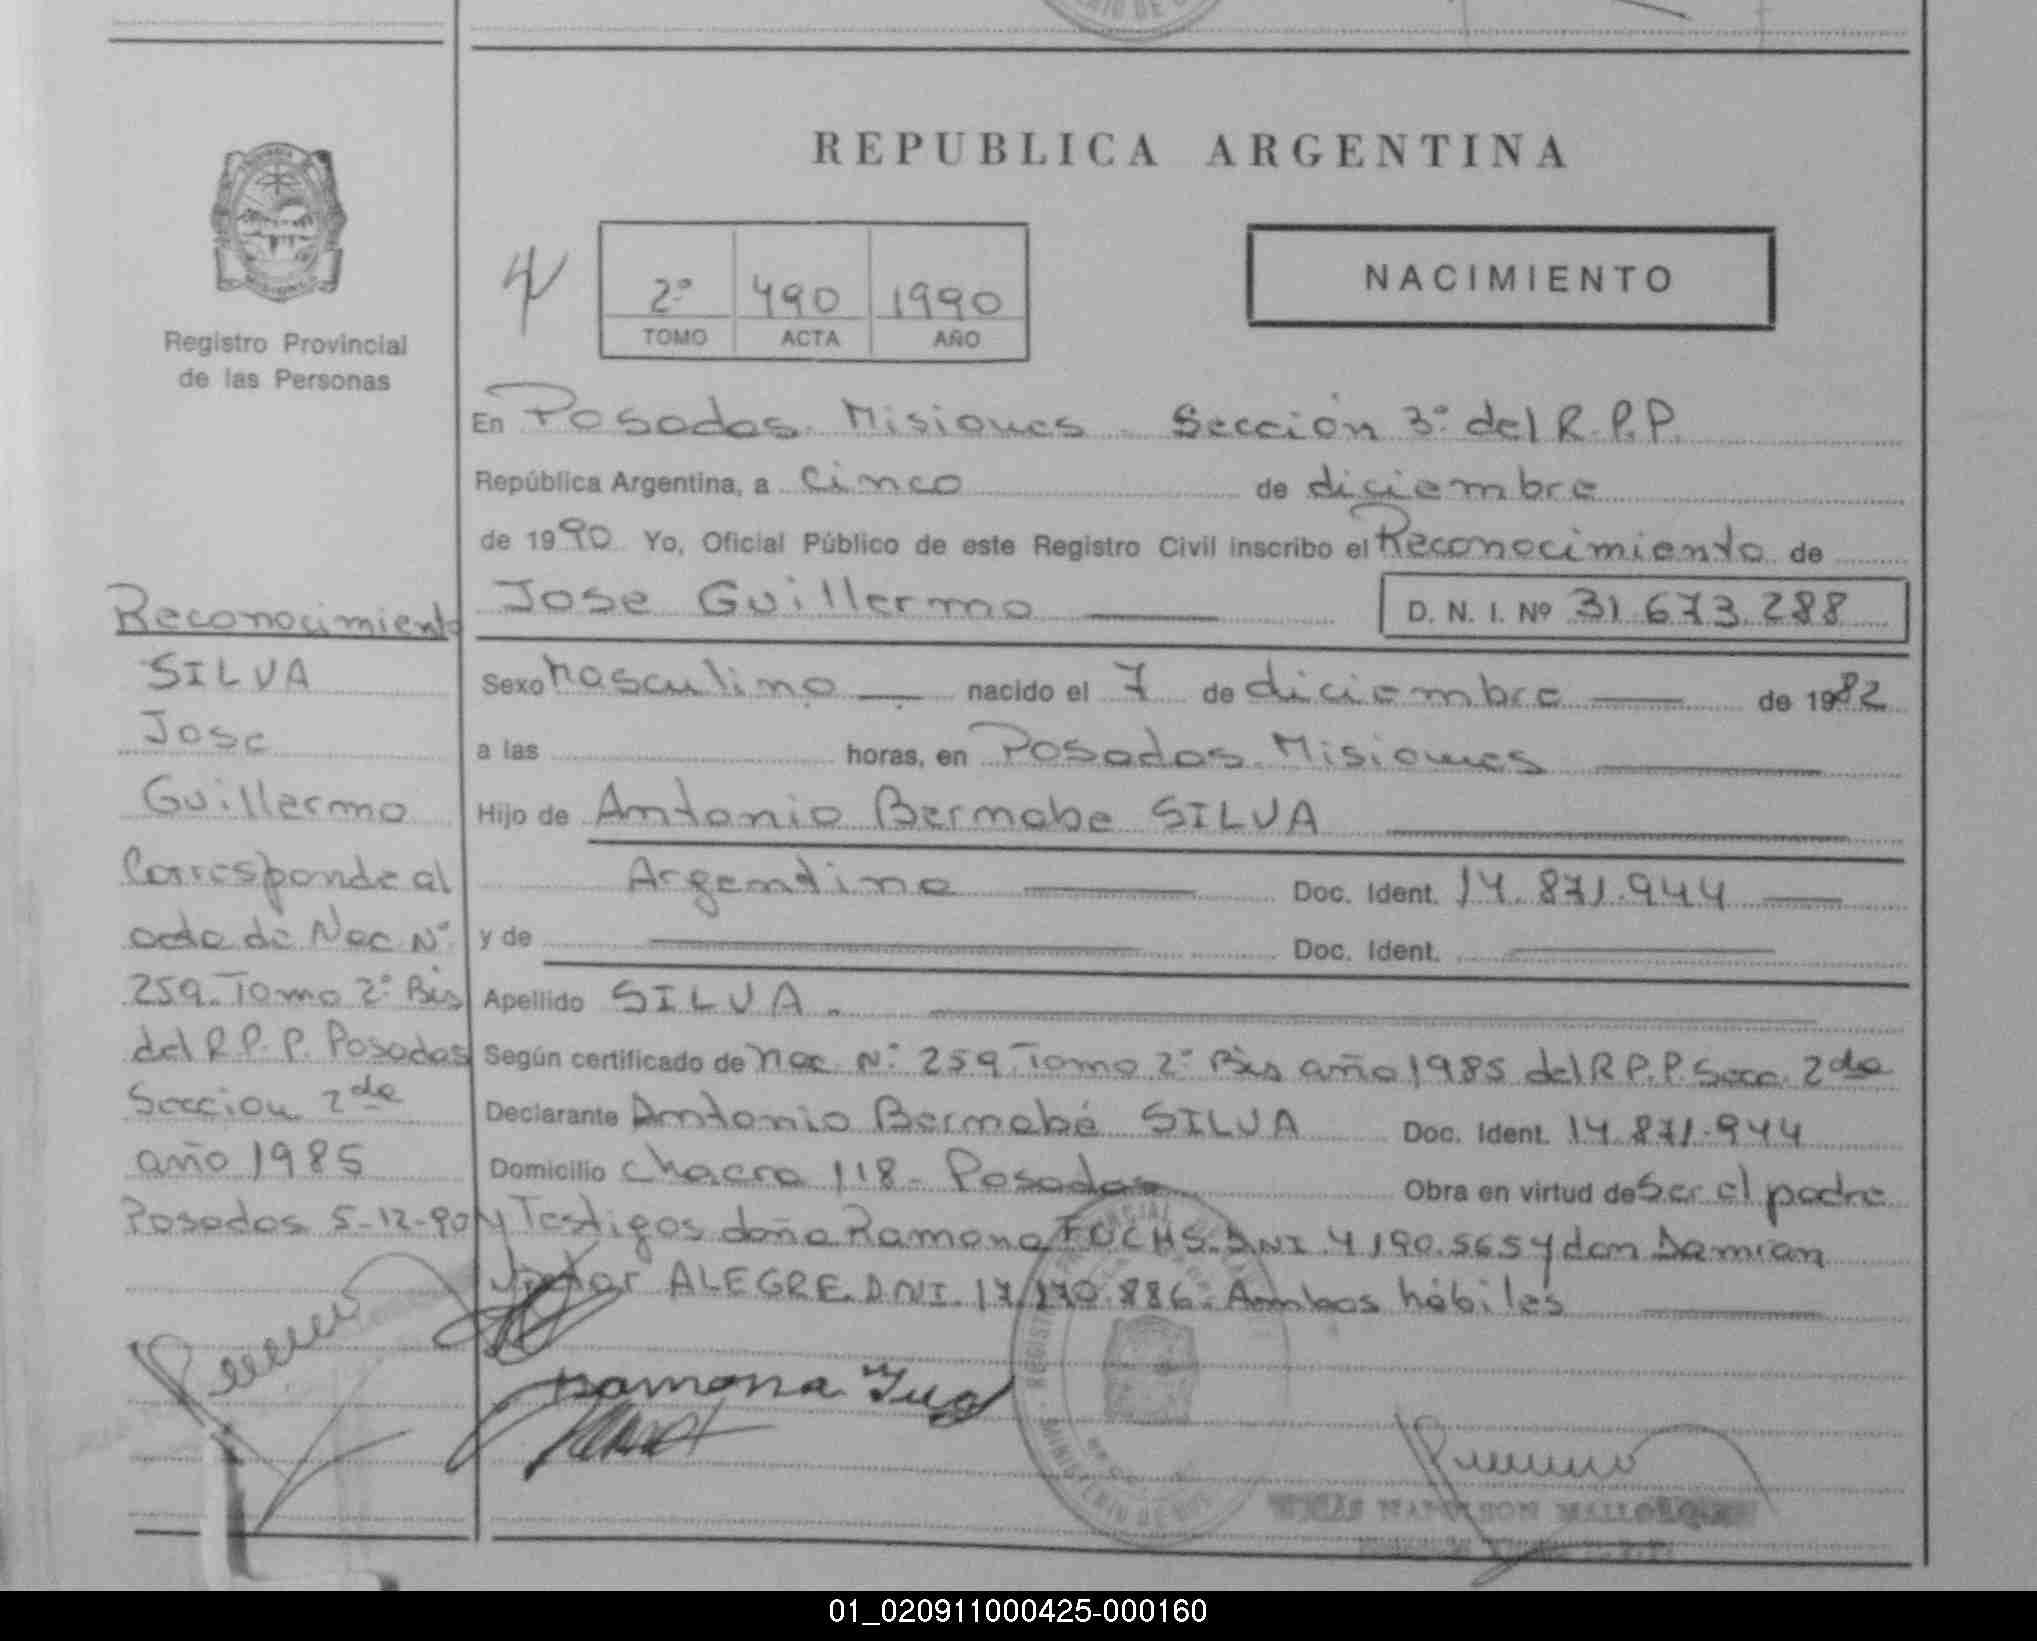 REPUBLICA ARGENTINA
NACIMIENTO
2º 490 1990
TOMO ACTA AÑO
Registro Provincial
de las Personas
En Posadas. Misiones - Sección 3º del R.P.P.
República Argentina, a cinco de diciembre
de 1990 Yo, Oficial Público de este Registro Civil inscribo el Reconocimiento de
Jose Guillermo D. N. I. Nº 31.673.288
Sexo masculino nacido el 7 de diciembre de 1982
a las horas, en Posadas. Misiones
Hijo de Antonio Bernabe SILVA
Argentino Doc. Ident. 14.871.944
y de Doc. Ident.
Apellido SILVA.
Según certificado de Nac. Nº 259. Tomo 2º Bis año 1985 del R.P.P. Secc. 2da
Declarante Antonio Bernabé SILVA Doc. Ident. 14.871.944
Domicilio chacra 118 - Posadas Obra en virtud de Ser el padre
y Testigos doña Ramona FUCHS. DNI. 4.190.565 y don Damian
ALEGRE. DNI. 17.170.886. Ambos hábiles
Ramona
Reconocimiento
SILVA
Jose
Guillermo
Corresponde al
acta de Nac. Nº
259. Tomo 2º Bis
del R.P.P. Posadas
Seccion 2da
año 1985
Posadas 5-12-90
01_020911000425-000160